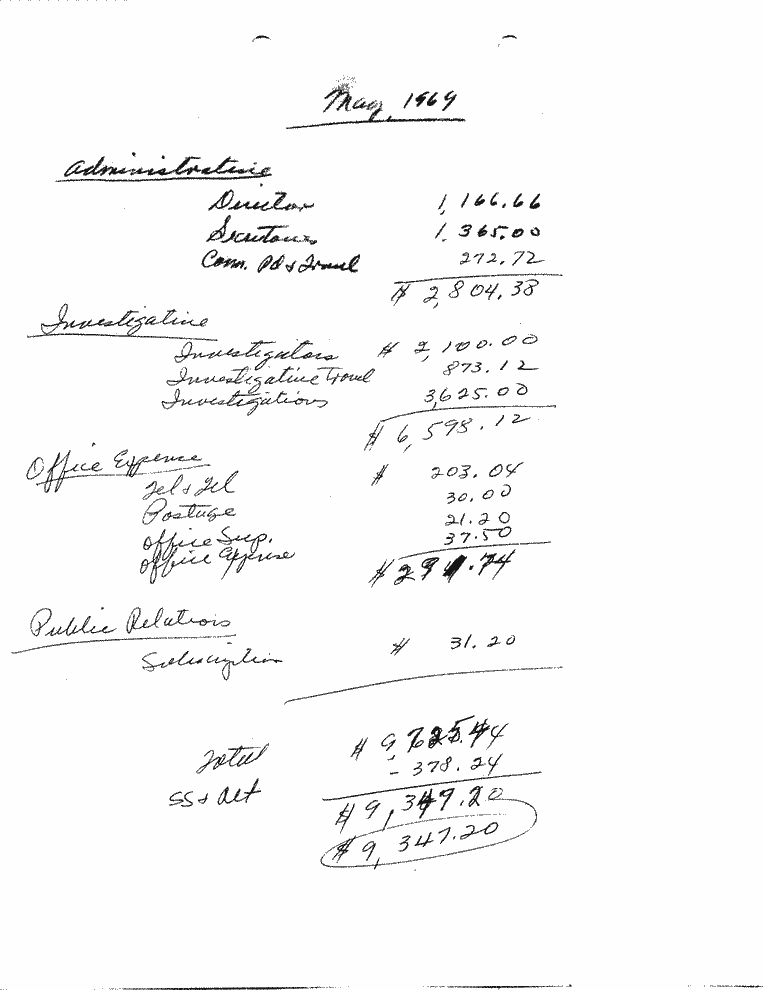 May, 1969
Administrative
Director 1,166.66
Secretaries 1,365.00
Comm. Pd & Travel 272.72
$ 2,804.38
Investigative
Investigators $ 2,100.00
Investigative Travel 873.12
Investigations 3,625.00
$ 6,598.12
Office Expense
Tel & Tel $ 203.04
Postage 30.00
Office Sup. 21.20
Office Expense 37.50
$ 291.74
Public Relations
Subscription $ 31.20
Total $ 9,725.44
SS & Ret - 378.24
$ 9,347.20
$ 9,347.20